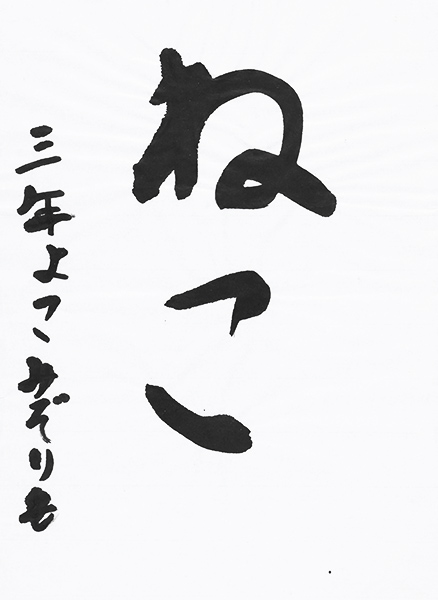 ねこ
三年よこみぞりも